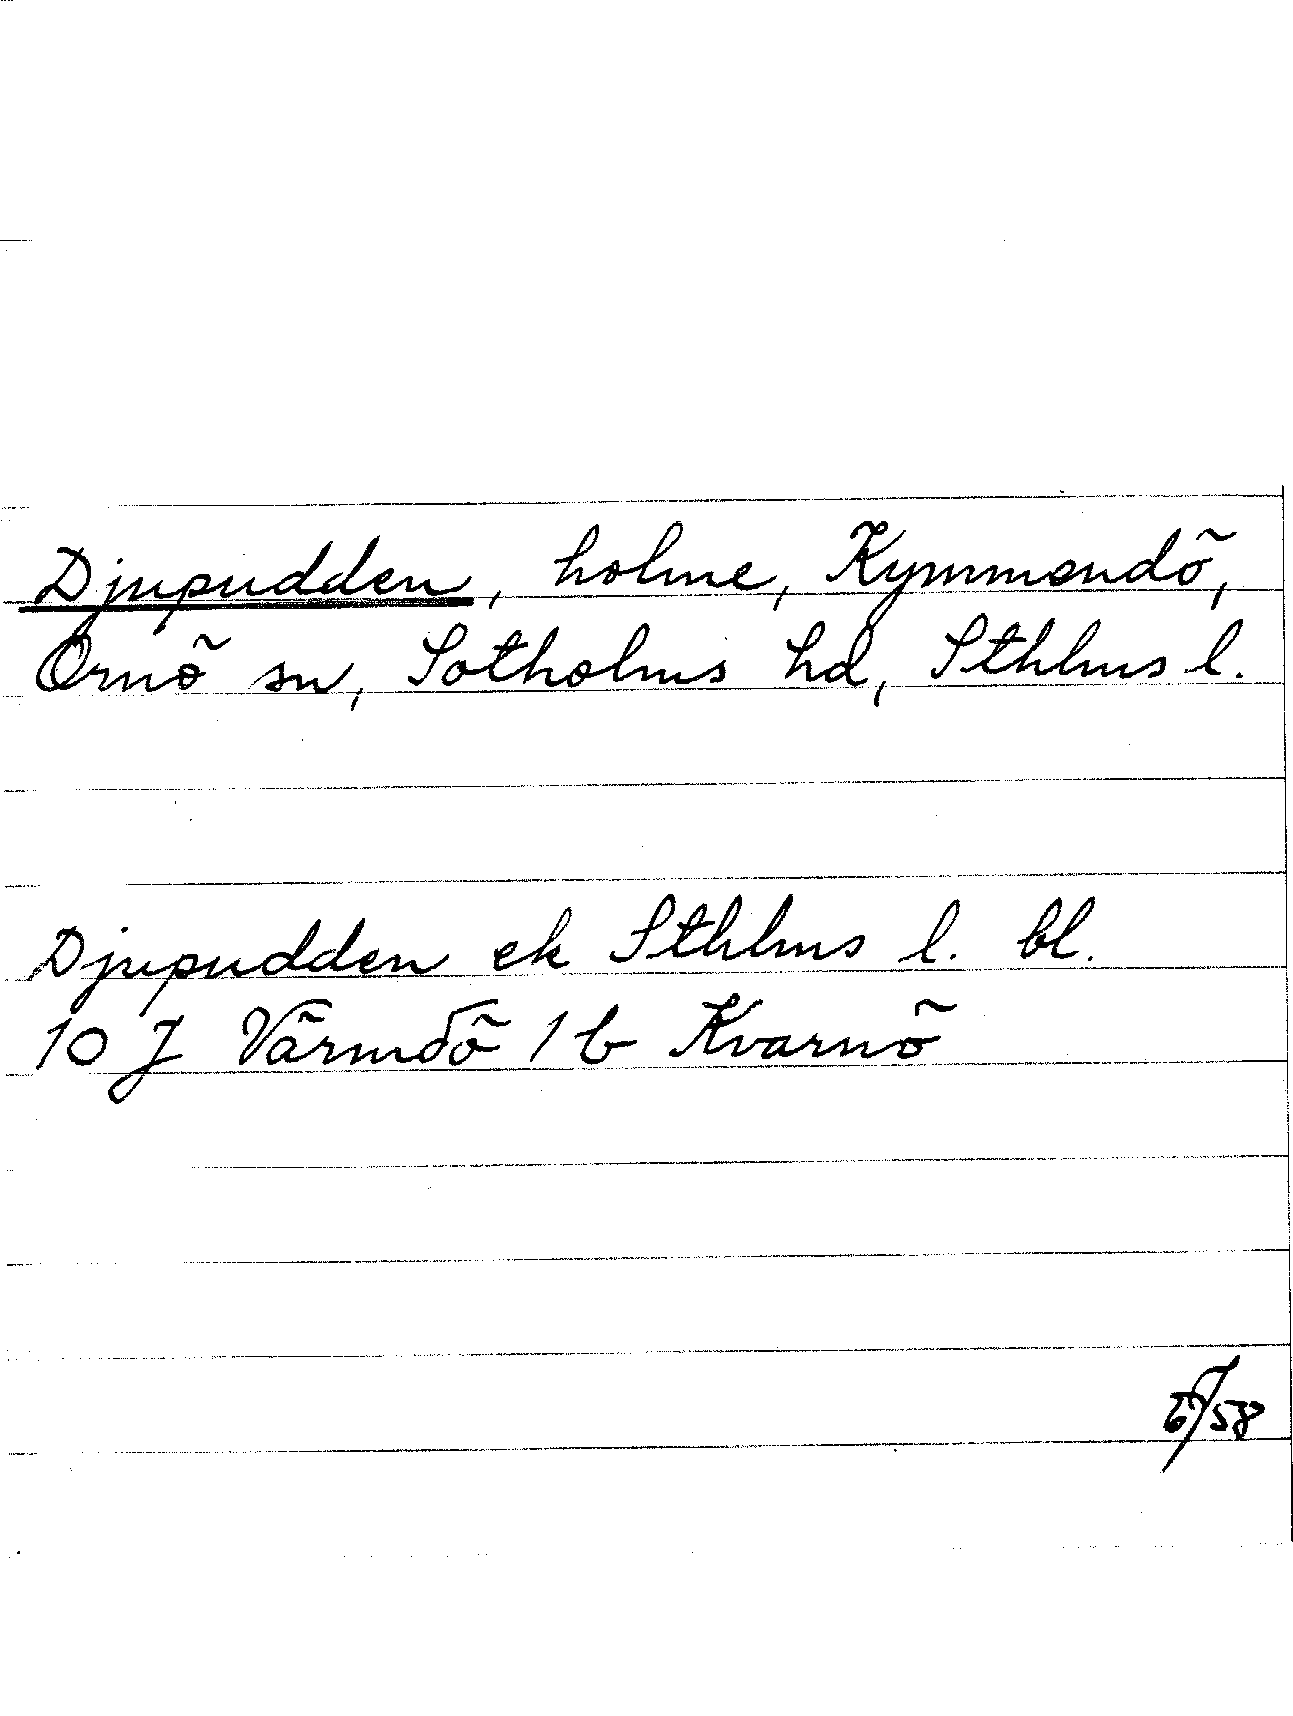 Djupudden, holme, Kymmendö,
Ornö sn, Sotholms hd, Sthlms l.
Djupudden ek Sthlms l. bl.
10 J Värmdö 1 b Kvarnö